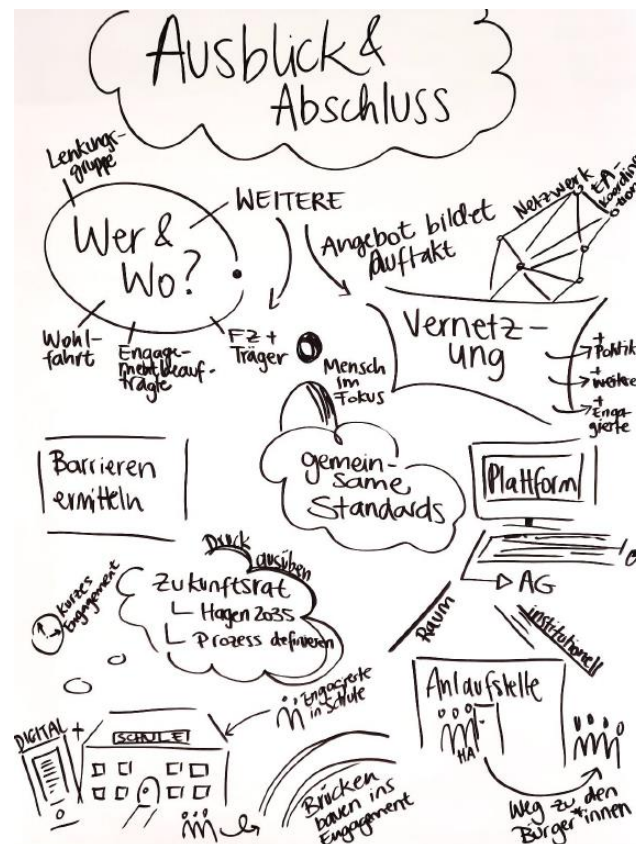 Ausblick &
Abschluss
Lenkungs-
gruppe
WEITERE
Wer &
Wo?
Wohl-
fahrt
Engage-
mentbeauf-
tragte
FZ +
Träger
Angebot bildet
Auftakt
Netzwerk
EA-
Koordina-
tion
Vernetz-
ung
+
Politik
+
weitere
+
Enga-
gierte
Mensch
im
Fokus
gemein-
same
Standards
Barrieren
ermitteln
Plattform
AG
Druck
ausüben
Zukunftsrat
Hagen 2035
Prozess definieren
kurzes
Engagement
Raum
institutionell
Anlaufstelle
HA
Weg zu den
Bürger*innen
DIGITAL +
SCHULE
Engagierte
in Schule
Brücken
bauen ins
Engagement